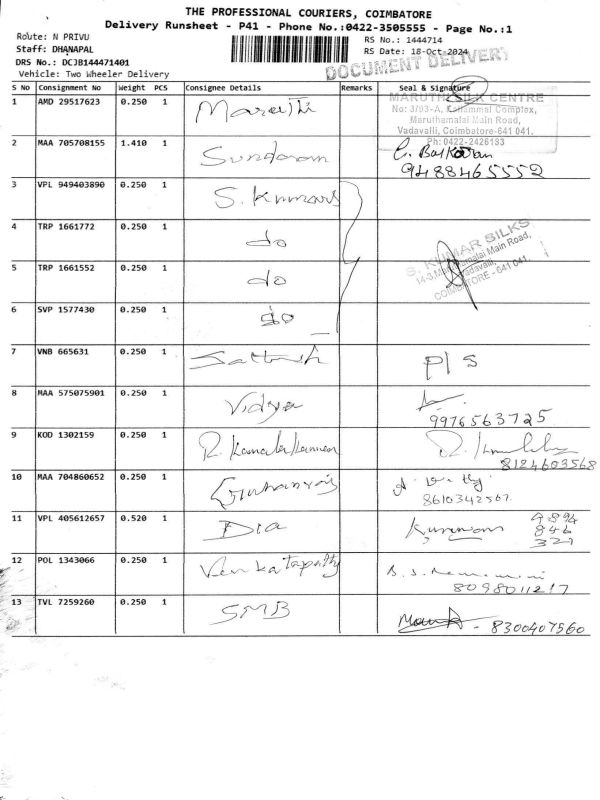 THE PROFESSIONAL COURIERS, COIMBATORE
Delivery Runsheet - P41 - Phone No.:0422-3505555 - Page No.:1
Route: N PRIVU
RS No.: 1444714
Staff: DHANAPAL
RS Date: 18-Oct-2024
DRS No.: DCJB144471401
DOCUMENT DELIVERY
Vehicle: Two Wheeler Delivery
S No Consignment No Weight PCS Consignee Details Remarks Seal & Signature
1 AMD 29517623 0.250 1 Maruthi
MARUTHI SILK CENTRE
No: 3/93-A, Kallammal Complex,
Maruthamalai Main Road,
Vadavalli, Coimbatore-641 041.
Ph: 0422-2426183
2 MAA 705708155 1.410 1 Sundaram
G. Baskaran
9488465552
3 VPL 949403890 0.250 1 S. Kumar
4 TRP 1661772 0.250 1 do
S. KUMAR SILKS
Main Road,
Vadavalli,
COIMBATORE - 641 041.
5 TRP 1661552 0.250 1 do
6 SVP 1577430 0.250 1 do
7 VNB 665631 0.250 1 Sathish P/S
8 MAA 575075901 0.250 1 Vidya
9976563725
9 KOD 1302159 0.250 1 R. Kamalakannan
8124603568
10 MAA 704860652 0.250 1
8610342567
11 VPL 405612657 0.520 1 Dia
9894
846
321
12 POL 1343066 0.250 1 Venkatapathy
8098011217
13 TVL 7259260 0.250 1 SMB
- 8300407560